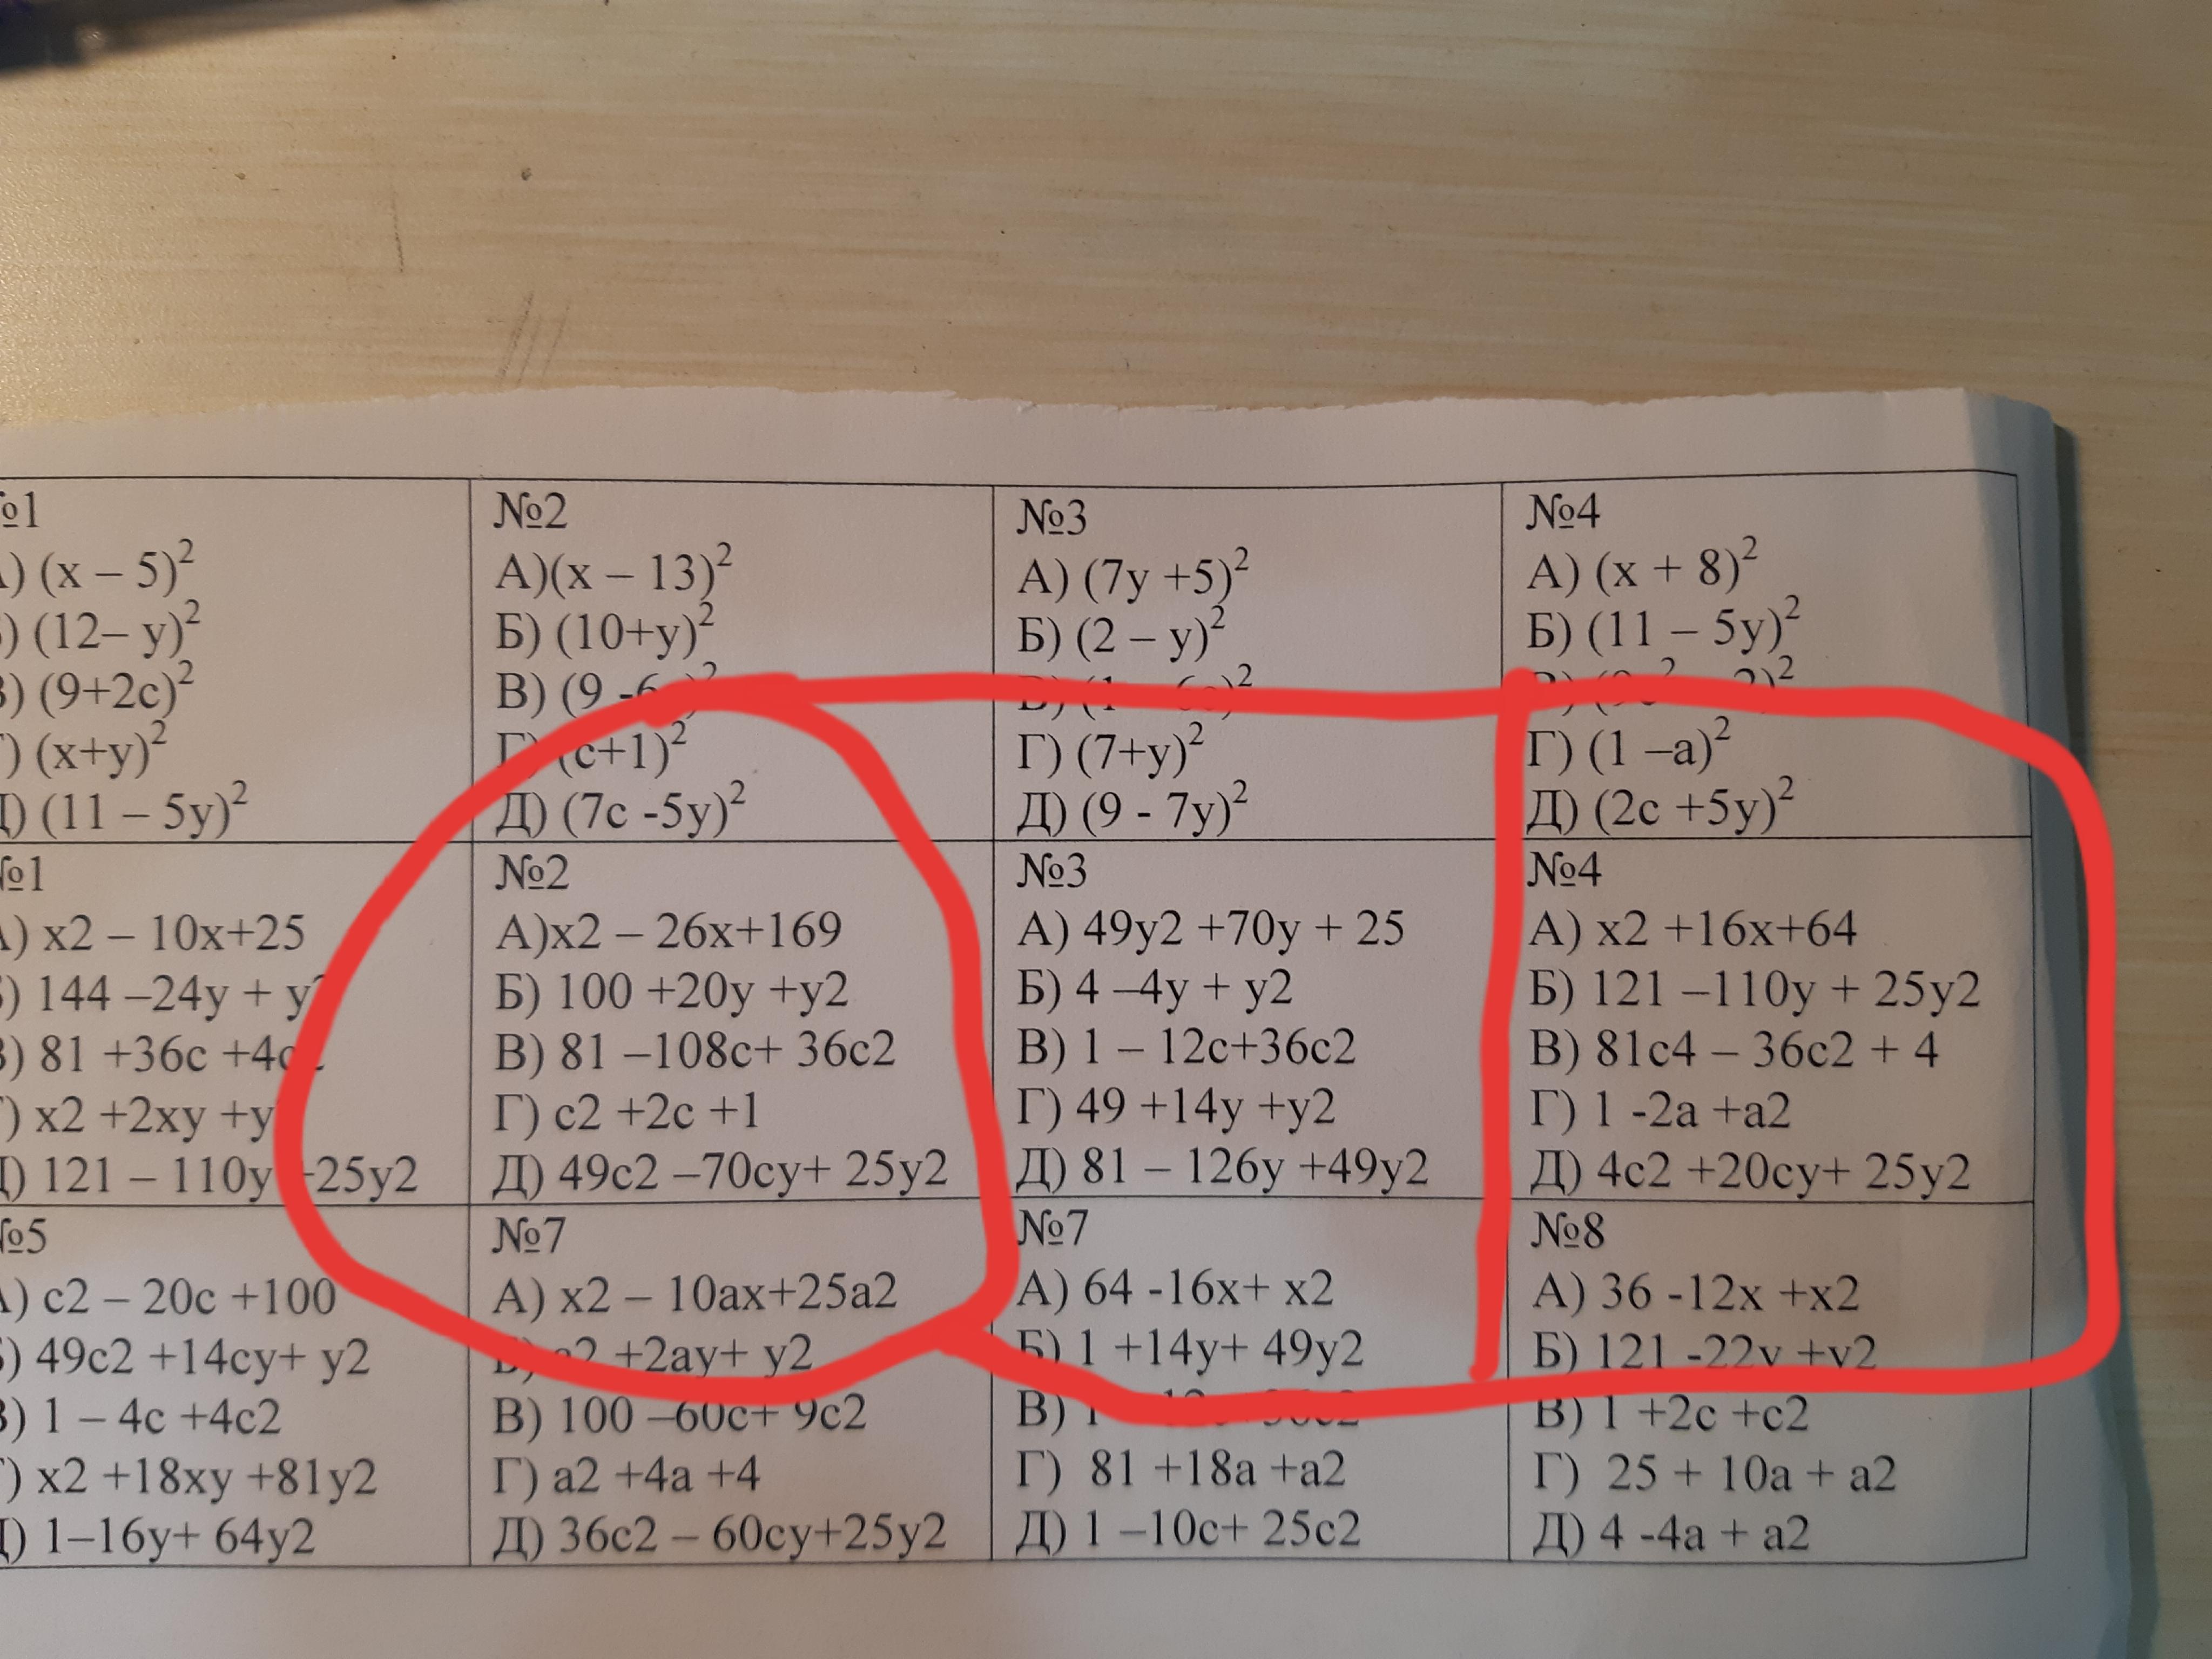 №1
) (x – 5)²
) (12– y)²
) (9+2c)²
) (x+y)²
) (11 – 5y)²
№2
А)(x – 13)²
Б) (10+y)²
В) (9 -6
Г) (c+1)²
Д) (7c -5y)²
№3
А) (7y +5)²
Б) (2 – y)²
Г) (7+y)²
Д) (9 - 7y)²
№4
А) (x + 8)²
Б) (11 – 5y)²
Г) (1 –a)²
Д) (2c +5y)²
№1
) x2 – 10x+25
) 144 –24y + y
) 81 +36c +4c
) x2 +2xy +y
) 121 – 110y +25y2
№2
А)x2 – 26x+169
Б) 100 +20y +y2
В) 81 –108c+ 36c2
Г) c2 +2c +1
Д) 49c2 –70cy+ 25y2
№3
А) 49y2 +70y + 25
Б) 4 –4y + y2
В) 1 – 12c+36c2
Г) 49 +14y +y2
Д) 81 – 126y +49y2
№4
А) x2 +16x+64
Б) 121 –110y + 25y2
В) 81c4 – 36c2 + 4
Г) 1 -2a +a2
Д) 4c2 +20cy+ 25y2
№5
) c2 – 20c +100
) 49c2 +14cy+ y2
) 1 – 4c +4c2
) x2 +18xy +81y2
) 1–16y+ 64y2
№7
А) x2 – 10ax+25a2
Б) a2 +2ay+ y2
В) 100 –60c+ 9c2
Г) a2 +4a +4
Д) 36c2 – 60cy+25y2
№7
А) 64 -16x+ x2
Б) 1 +14y+ 49y2
В) 1
Г) 81 +18a +a2
Д) 1 –10c+ 25c2
№8
А) 36 -12x +x2
Б) 121 -22y +y2
В) 1 +2c +c2
Г) 25 + 10a + a2
Д) 4 -4a + a2